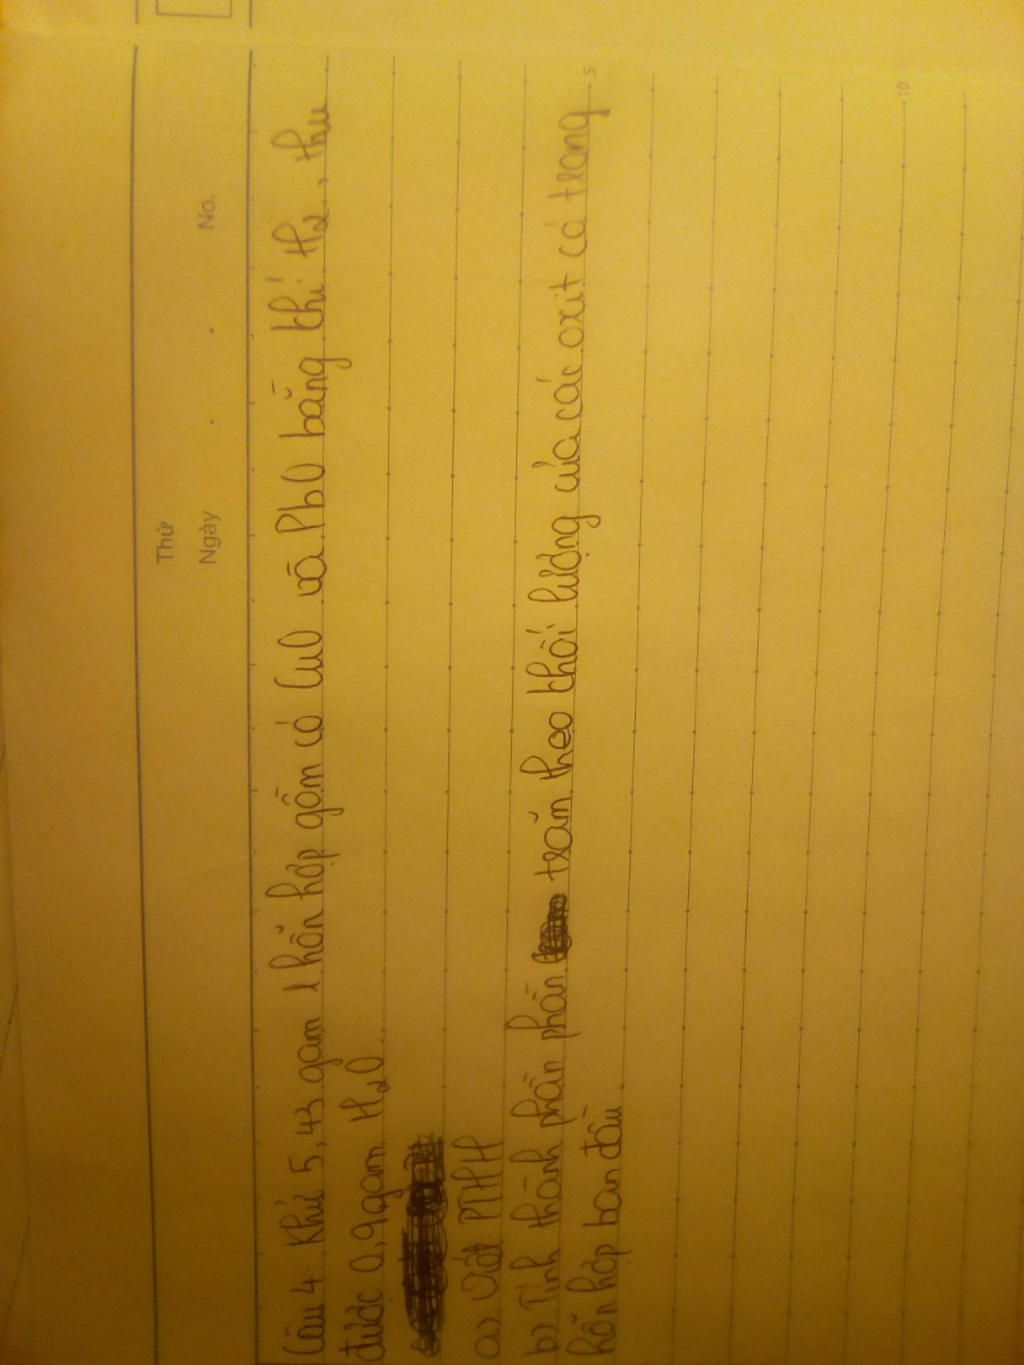 Thứ
Ngày . . No.
Câu 4: Khử 5,43 gam 1 hỗn hợp gồm có CuO và PbO bằng khí H2, thu
được 0,9gam H2O
a) Viết PTHH
b) Tính thành phần phần trăm theo khối lượng của các oxit có trong
hỗn hợp ban đầu
5
10